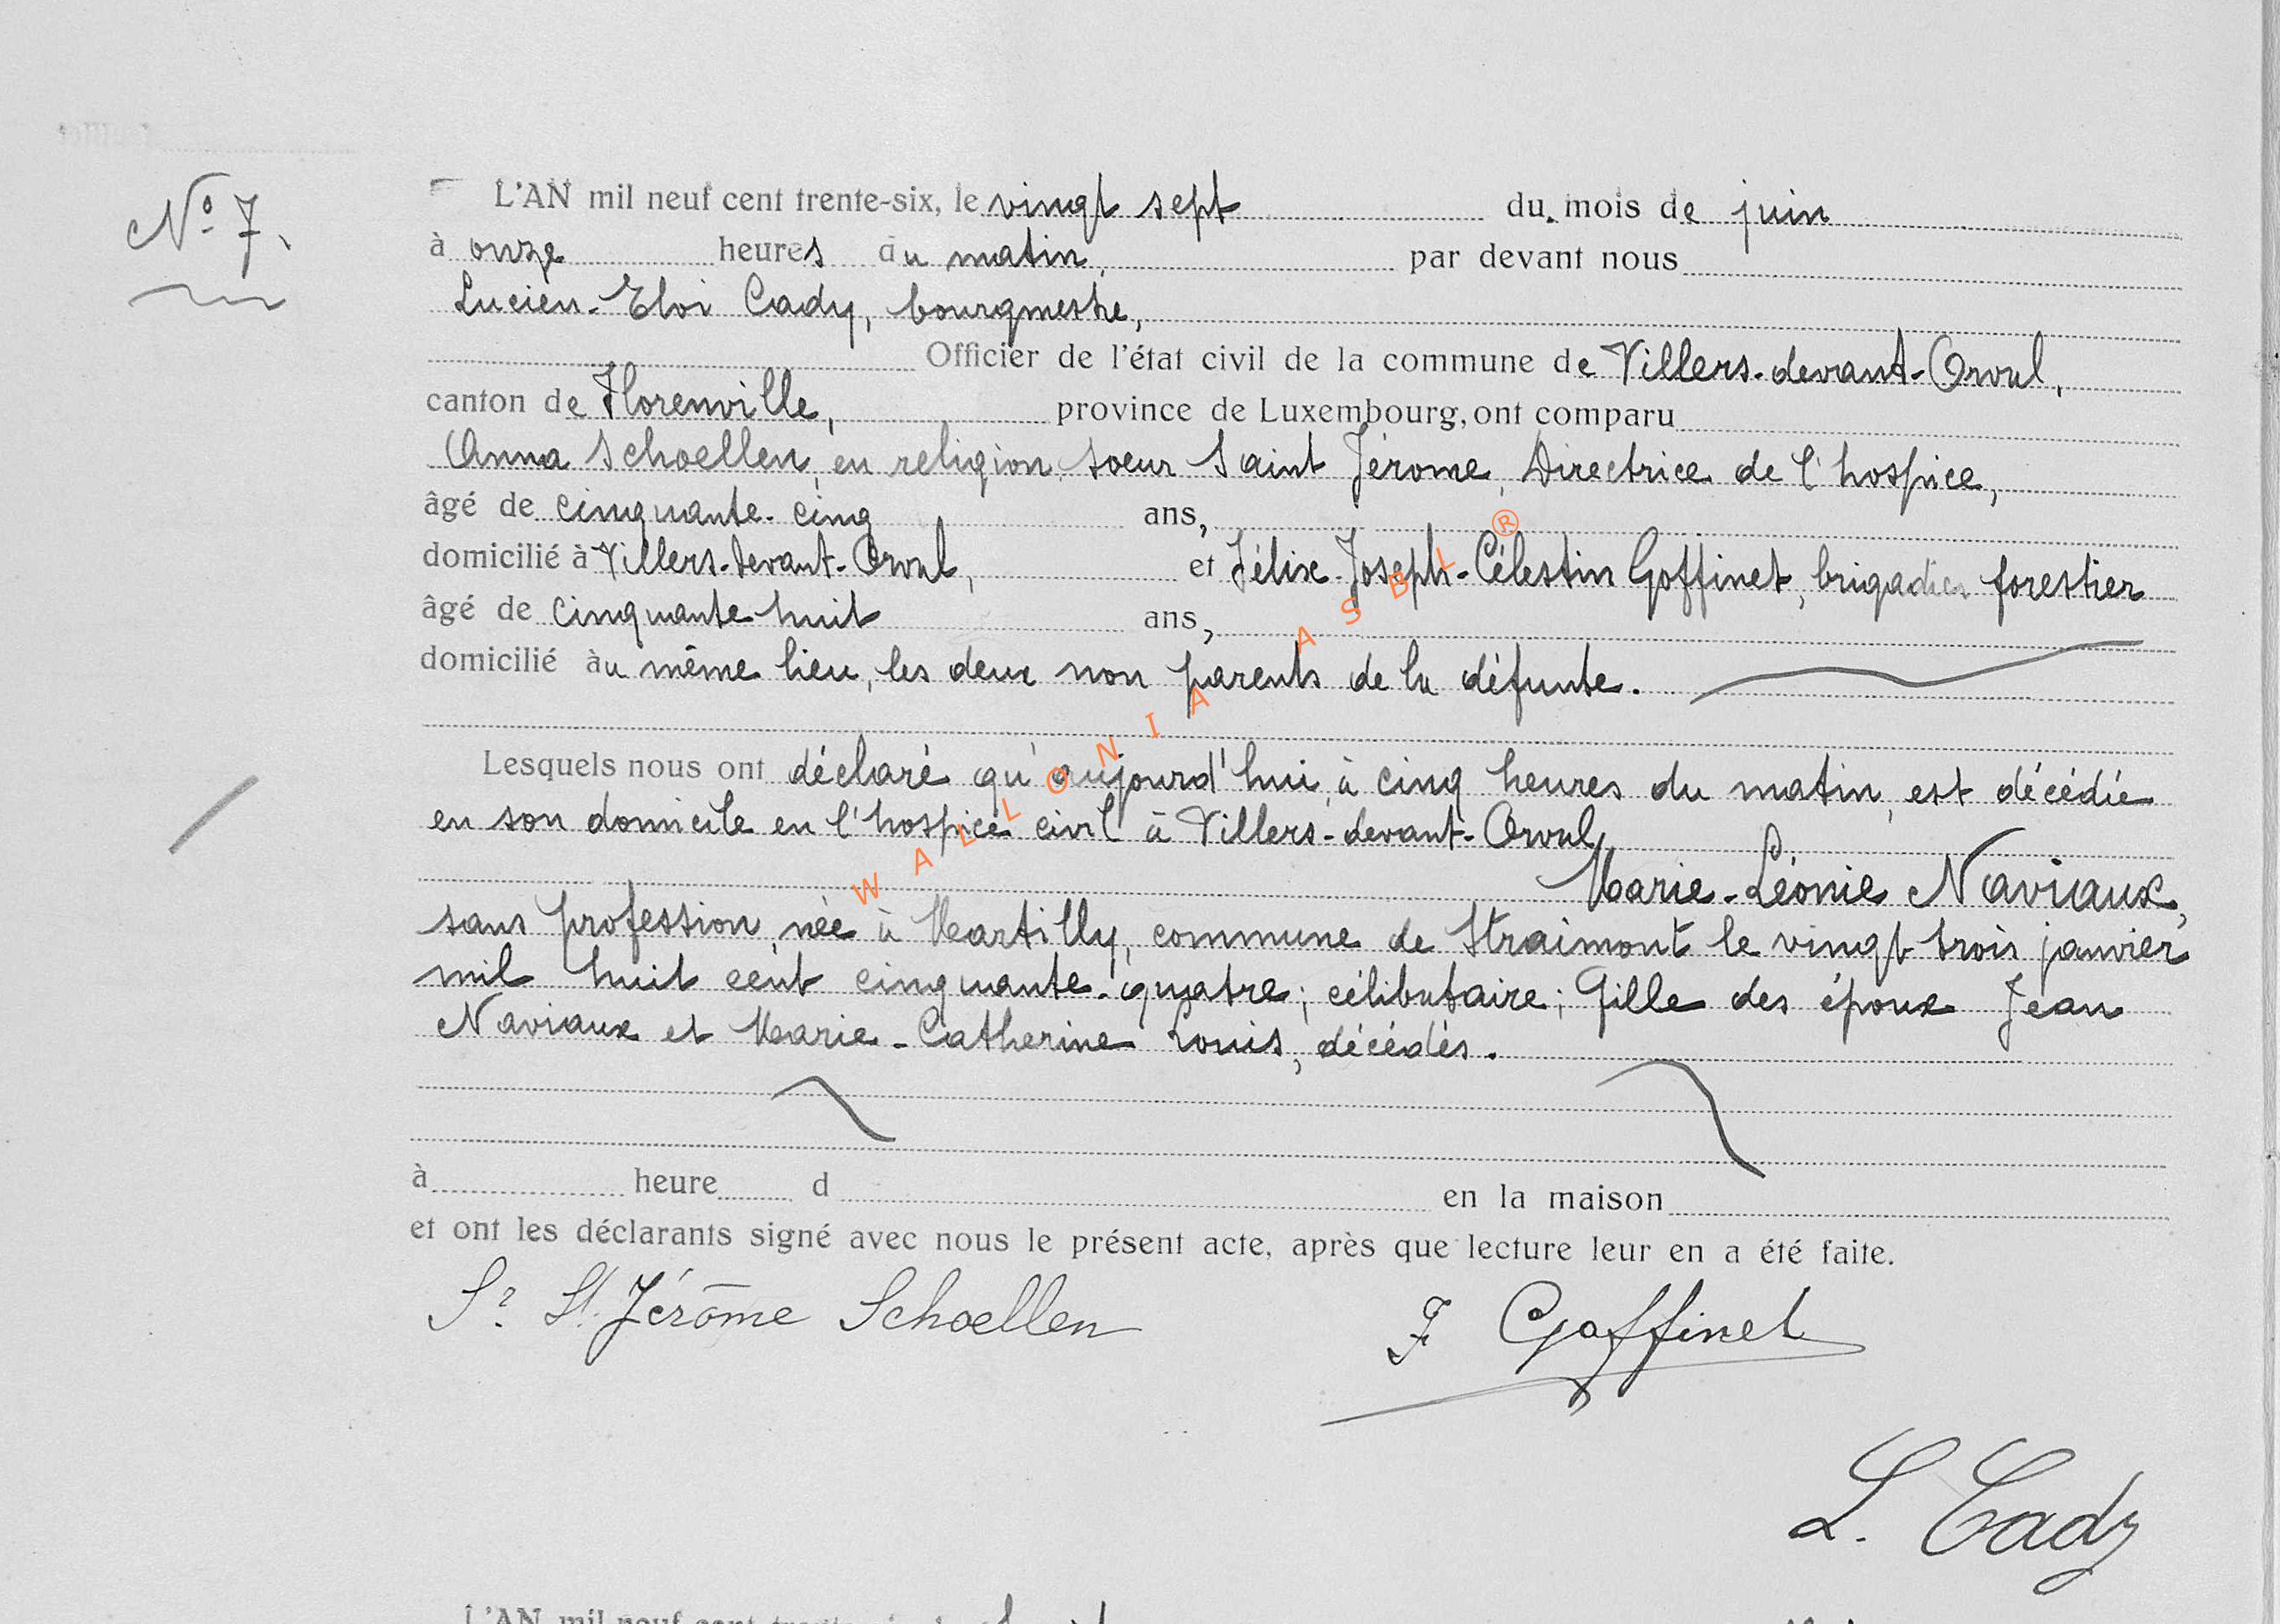 N° 7.
L'AN mil neuf cent trente-six, le vingt sept du mois de juin
à onze heures du matin, par devant nous
Lucien-Eloi Cady, bourgmestre,
Officier de l'état civil de la commune de Villers-devant-Orval,
canton de Florenville, province de Luxembourg, ont comparu
Anna Schoellen, en religion, soeur Saint Jérome, Directrice de l'hospice,
âgé de cinquante-cinq ans,
domicilié à Villers-devant-Orval, et Félix-Joseph-Célestin Goffinet, brigadier forestier
âgé de cinquante huit ans,
domicilié au même lieu, les deux non parents de la défunte.
Lesquels nous ont déclaré qu'aujourd'hui, à cinq heures du matin, est décédée
en son domicile en l'hospice civil à Villers-devant-Orval,
Marie-Léonie Naviaux,
sans profession, née à Martilly, commune de Straimont le vingt trois janvier
mil huit cent cinquante-quatre; célibataire; fille des époux Jean
Naviaux et Marie-Catherine Louis, décédés.
à heure d en la maison
et ont les déclarants signé avec nous le présent acte, après que lecture leur en a été faite.
Sr. St. Jérôme Schoellen F Goffinet
L. Cady
WALLONIA ASBL ®